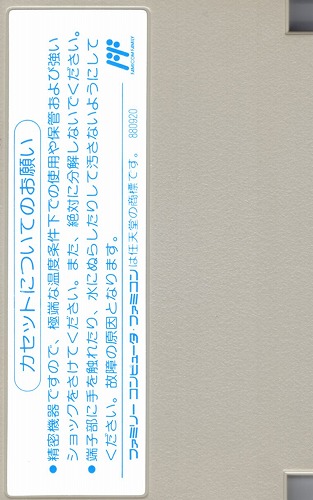 カセットについてのお願い
●精密機器ですので、極端な温度条件下での使用や保管および強い
ショックをさけてください。また、絶対に分解しないでください。
●端子部に手を触れたり、水にぬらしたりして汚さないようにして
ください。故障の原因となります。
ファミリーコンピュータ・ファミコンは任天堂の商標です。 880920
FAMICOM FAMILY